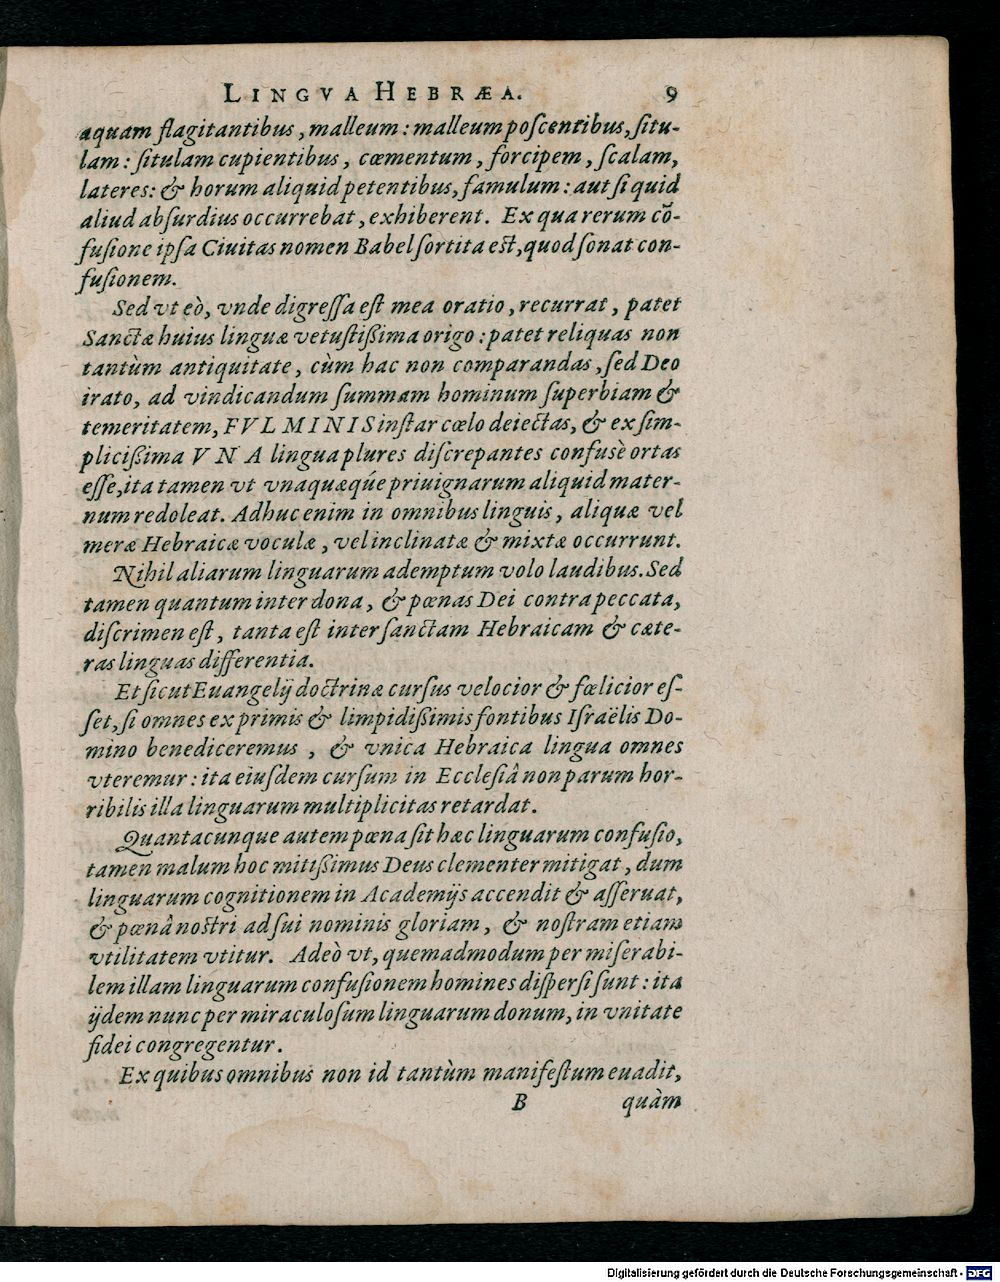 LINGVA HEBRÆA. 9
aquam flagitantibus, malleum: malleum poſcentibus, ſitu-
lam: ſitulam cupientibus, cœmentum, forcipem, ſcalam,
lateres: & horum aliquid petentibus, famulum: aut ſi quid
aliud abſurdius occurrebat, exhiberent. Ex qua rerum cō-
fuſione ipſa Ciuitas nomen Babel ſortita eſt, quod ſonat con-
fuſionem.
Sed vt eò, vnde digreſſa eſt mea oratio, recurrat, patet
Sanctæ huius linguæ vetuſtißima origo: patet reliquas non
tantùm antiquitate, cùm hac non comparandas, ſed Deo
irato, ad vindicandum ſummam hominum ſuperbiam &
temeritatem, FVLMINIS inſtar cœlo deiectas, & ex ſim-
plicißima VNA lingua plures diſcrepantes confusè ortas
eſſe, ita tamen vt vnaquæqúe priuignarum aliquid mater-
num redoleat. Adhuc enim in omnibus linguis, aliquæ vel
meræ Hebraicæ voculæ, vel inclinatæ & mixtæ occurrunt.
Nihil aliarum linguarum ademptum volo laudibus. Sed
tamen quantum inter dona, & pœnas Dei contra peccata,
diſcrimen eſt, tanta eſt inter ſanctam Hebraicam & cæte-
ras linguas differentia.
Et ſicut Euangelij doctrinæ curſus velocior & fœlicior eſ-
ſet, ſi omnes ex primis & limpidißimis fontibus Iſraëlis Do-
mino benediceremus, & vnica Hebraica lingua omnes
vteremur: ita eiuſdem curſum in Eccleſiâ non parum hor-
ribilis illa linguarum multiplicitas retardat.
Quantacunque autem pœna ſit hæc linguarum confuſio,
tamen malum hoc mitißimus Deus clementer mitigat, dum
linguarum cognitionem in Academijs accendit & aſſeruat,
& pœnâ noſtri ad ſui nominis gloriam, & noſtram etiam
vtilitatem vtitur. Adeò vt, quemadmodum per miſerabi-
lem illam linguarum confuſionem homines diſperſi ſunt: ita
ijdem nunc per miraculoſum linguarum donum, in vnitate
fidei congregentur.
Ex quibus omnibus non id tantùm manifeſtum euadit,
B quàm
Digitalisierung gefördert durch die Deutsche Forschungsgemeinschaft - DFG